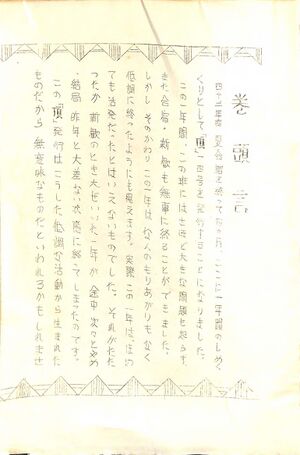 巻頭言
四十三年度夏合宿を終って
ここに一年間のしめく
くりとして「頂」一四号を発行することになりました。
この一年間、この班にはさほど大きな問題も起らず、
きた合宿・新歓も無事に終ることができました。
しかし そのかわり この一年は なんのもりあがりもなく
低調に終ったようにも見えます。実際 この一年は、
ても活発だったとはいえないものでした。それがたた
ったか 新歓のとき大ぜいいた一年が 途中次々とやめ
結局 昨年と大差ない状態に終ってしまったのです。
この「頂」発行はこうした低調な活動から生まれた
ものだから 無意味なものだといわれるかもしれませ